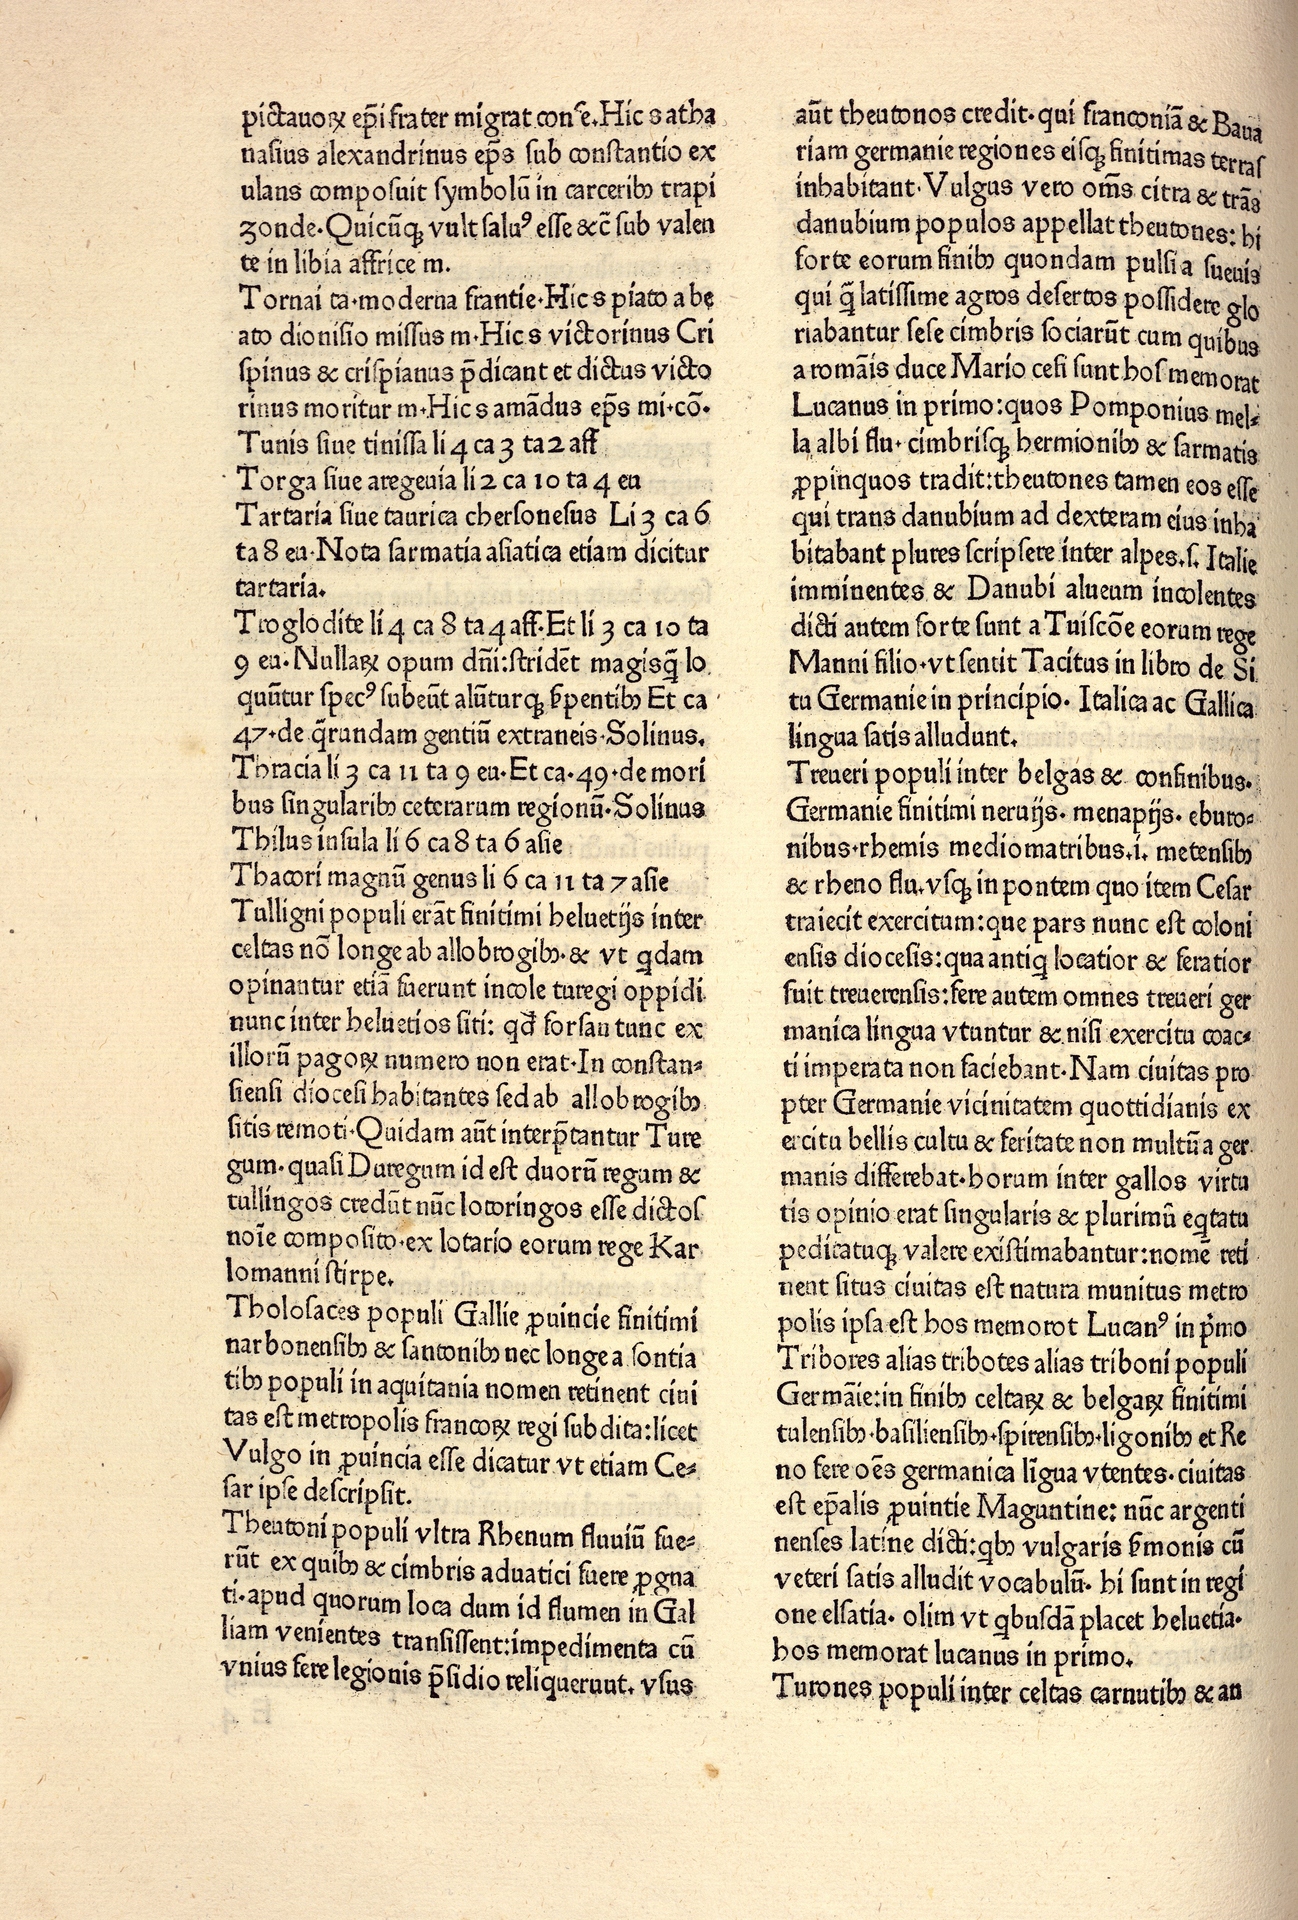 pictauoꝝ ep̄i frater migrat conꝭe. Hic s atha
nasius alexandrinus ep̄s sub constantio ex
ulans composuit symbolū in carceribꝫ trapi
zonde. Quicūqꝫ vult saluꝰ esse &c̄ sub valen
te in libia affrice m.
Tornai ta. moderna frantie. Hic s piato a be
ato dionisio missus m. Hic s victorinus Cri
spinus & crispianus p̄dicant et dictus victo
rinus moritur m. Hic s amādus ep̄s mi. cō.
Tunis siue tinissa li 4 ca 3 ta 2 aff
Torga siue aregenia li 2 ca 10 ta 4 eu
Tartaria siue taurica chersonesus Li 3 ca 6
ta 8 eu. Nota sarmatia asiatica etiam dicitur
tartaria.
Troglodite li 4 ca 8 ta 4 aff. Et li 3 ca 10 ta
9 eu. Nullaꝝ opum dn̄i: stridēt magisq̄ lo
quūtur specꝰ subeūt alūturqꝫ ẜpentibꝫ Et ca
47. de q̄rundam gentiū extraneis. Solinus.
Thracia li 3 ca 11 ta 9 eu. Et ca. 49. de mori
bus singularibꝫ ceterarum regionū. Solinus
Thilus insula li 6 ca 8 ta 6 asie
Thacori magnū genus li 6 ca 11 ta 7 asie
Tulligni populi erāt finitimi heluetijs inter
celtas nō longe ab allobrogibꝫ. & vt q̄dam
opinantur etiā fuerunt incole turegi oppidi
nunc inter heluetios siti: qd̄ forsan tunc ex
illorū pagoꝝ numero non erat. In constan⸗
siensi diocesi habitantes sed ab allobrogibꝫ
sitis remoti. Quidam aūt interp̄tantur Ture
gum. quasi Duregum id est duorū regum &
tullingos credūt nūc lotoringos esse dictos
noīe composito. ex lotario eorum rege Kar
lomanni stirpe.
Tholosaces populi Gallie ꝓuincie finitimi
narbonensibꝫ & santonibꝫ nec longe a sontia
tibꝫ populi in aquitania nomen retinent ciui
tas est metropolis francoꝝ regi subdita: licet
Vulgo in ꝓuincia esse dicatur vt etiam Ce⸗
sar ipse descripsit.
Theutoni populi vltra Rhenum fluuiū fue⸗
rūt ex quibꝫ & cimbris aduatici fuere ꝓgna
ti. apud quorum loca dum id flumen in Gal
liam venientes transissent: impedimenta cū
vnius fere legionis p̄sidio reliquerunt. vsus
aūt theutonos credit. qui franconiā & Baua
riam germanie regiones eisqꝫ finitimas terras
inhabitant. Vulgus vero om̄s citra & trās
danubium populos appellat theutones: hi
forte eorum finibꝫ quondam pulsi a sueuis
qui q̄ latissime agros desertos possidere glo
riabantur sese cimbris sociarūt cum quibus
a romāis duce Mario cesi sunt hos memorat
Lucanus in primo: quos Pomponius mel⸗
la albi flu. cimbrisqꝫ hermionibꝫ & sarmatis
ꝓpinquos tradit: theutones tamen eos esse
qui trans danubium ad dexteram eius inha
bitabant plures scripsere inter alpes. s. Italie
imminentes & Danubi alueum incolentes
dicti autem forte sunt a Tuiscōe eorum rege
Manni filio. vt sentit Tacitus in libro de Si
tu Germanie in principio. Italica ac Gallica
lingua satis alludunt.
Treueri populi inter belgas & confinibus.
Germanie finitimi neruijs. menapijs. eburo⸗
nibus. rhemis mediomatribus. i. metensibꝫ
& rheno flu. vsqꝫ in pontem quo item Cesar
traiecit exercitum: que pars nunc est coloni
ensis diocesis: qua antiq̄ locatior & feratior
fuit treuerensis: fere autem omnes treueri ger
manica lingua vtuntur & nisi exercitu coac⸗
ti imperata non faciebant. Nam ciuitas pro
pter Germanie vicinitatem quottidianis ex
ercitu bellis cultu & feritate non multū a ger
manis differebat. horum inter gallos virtu
tis opinio erat singularis & plurimū eq̄tatu
peditatuqꝫ valere existimabantur: nomē reti
nent situs ciuitas est natura munitus metro
polis ipsa est hos memorot Lucanꝰ in p̄mo
Tribores alias tribotes alias triboni populi
Germāie: in finibꝫ celtaꝝ & belgaꝝ finitimi
tulensibꝫ. basiliensibꝫ. spirensibꝫ. ligonibꝫ et Re
no fere oēs germanica līgua vtentes. ciuitas
est ep̄alis ꝓuintie Maguntine: nūc argenti
nenses latine dicti: qbꝫ vulgaris ẜmonis cū
veteri satis alludit vocabulū. hi sunt in regi
one elsatia. olim vt q̄busdā placet heluetia.
hos memorat lucanus in primo.
Turones populi inter celtas carnutibꝫ & an